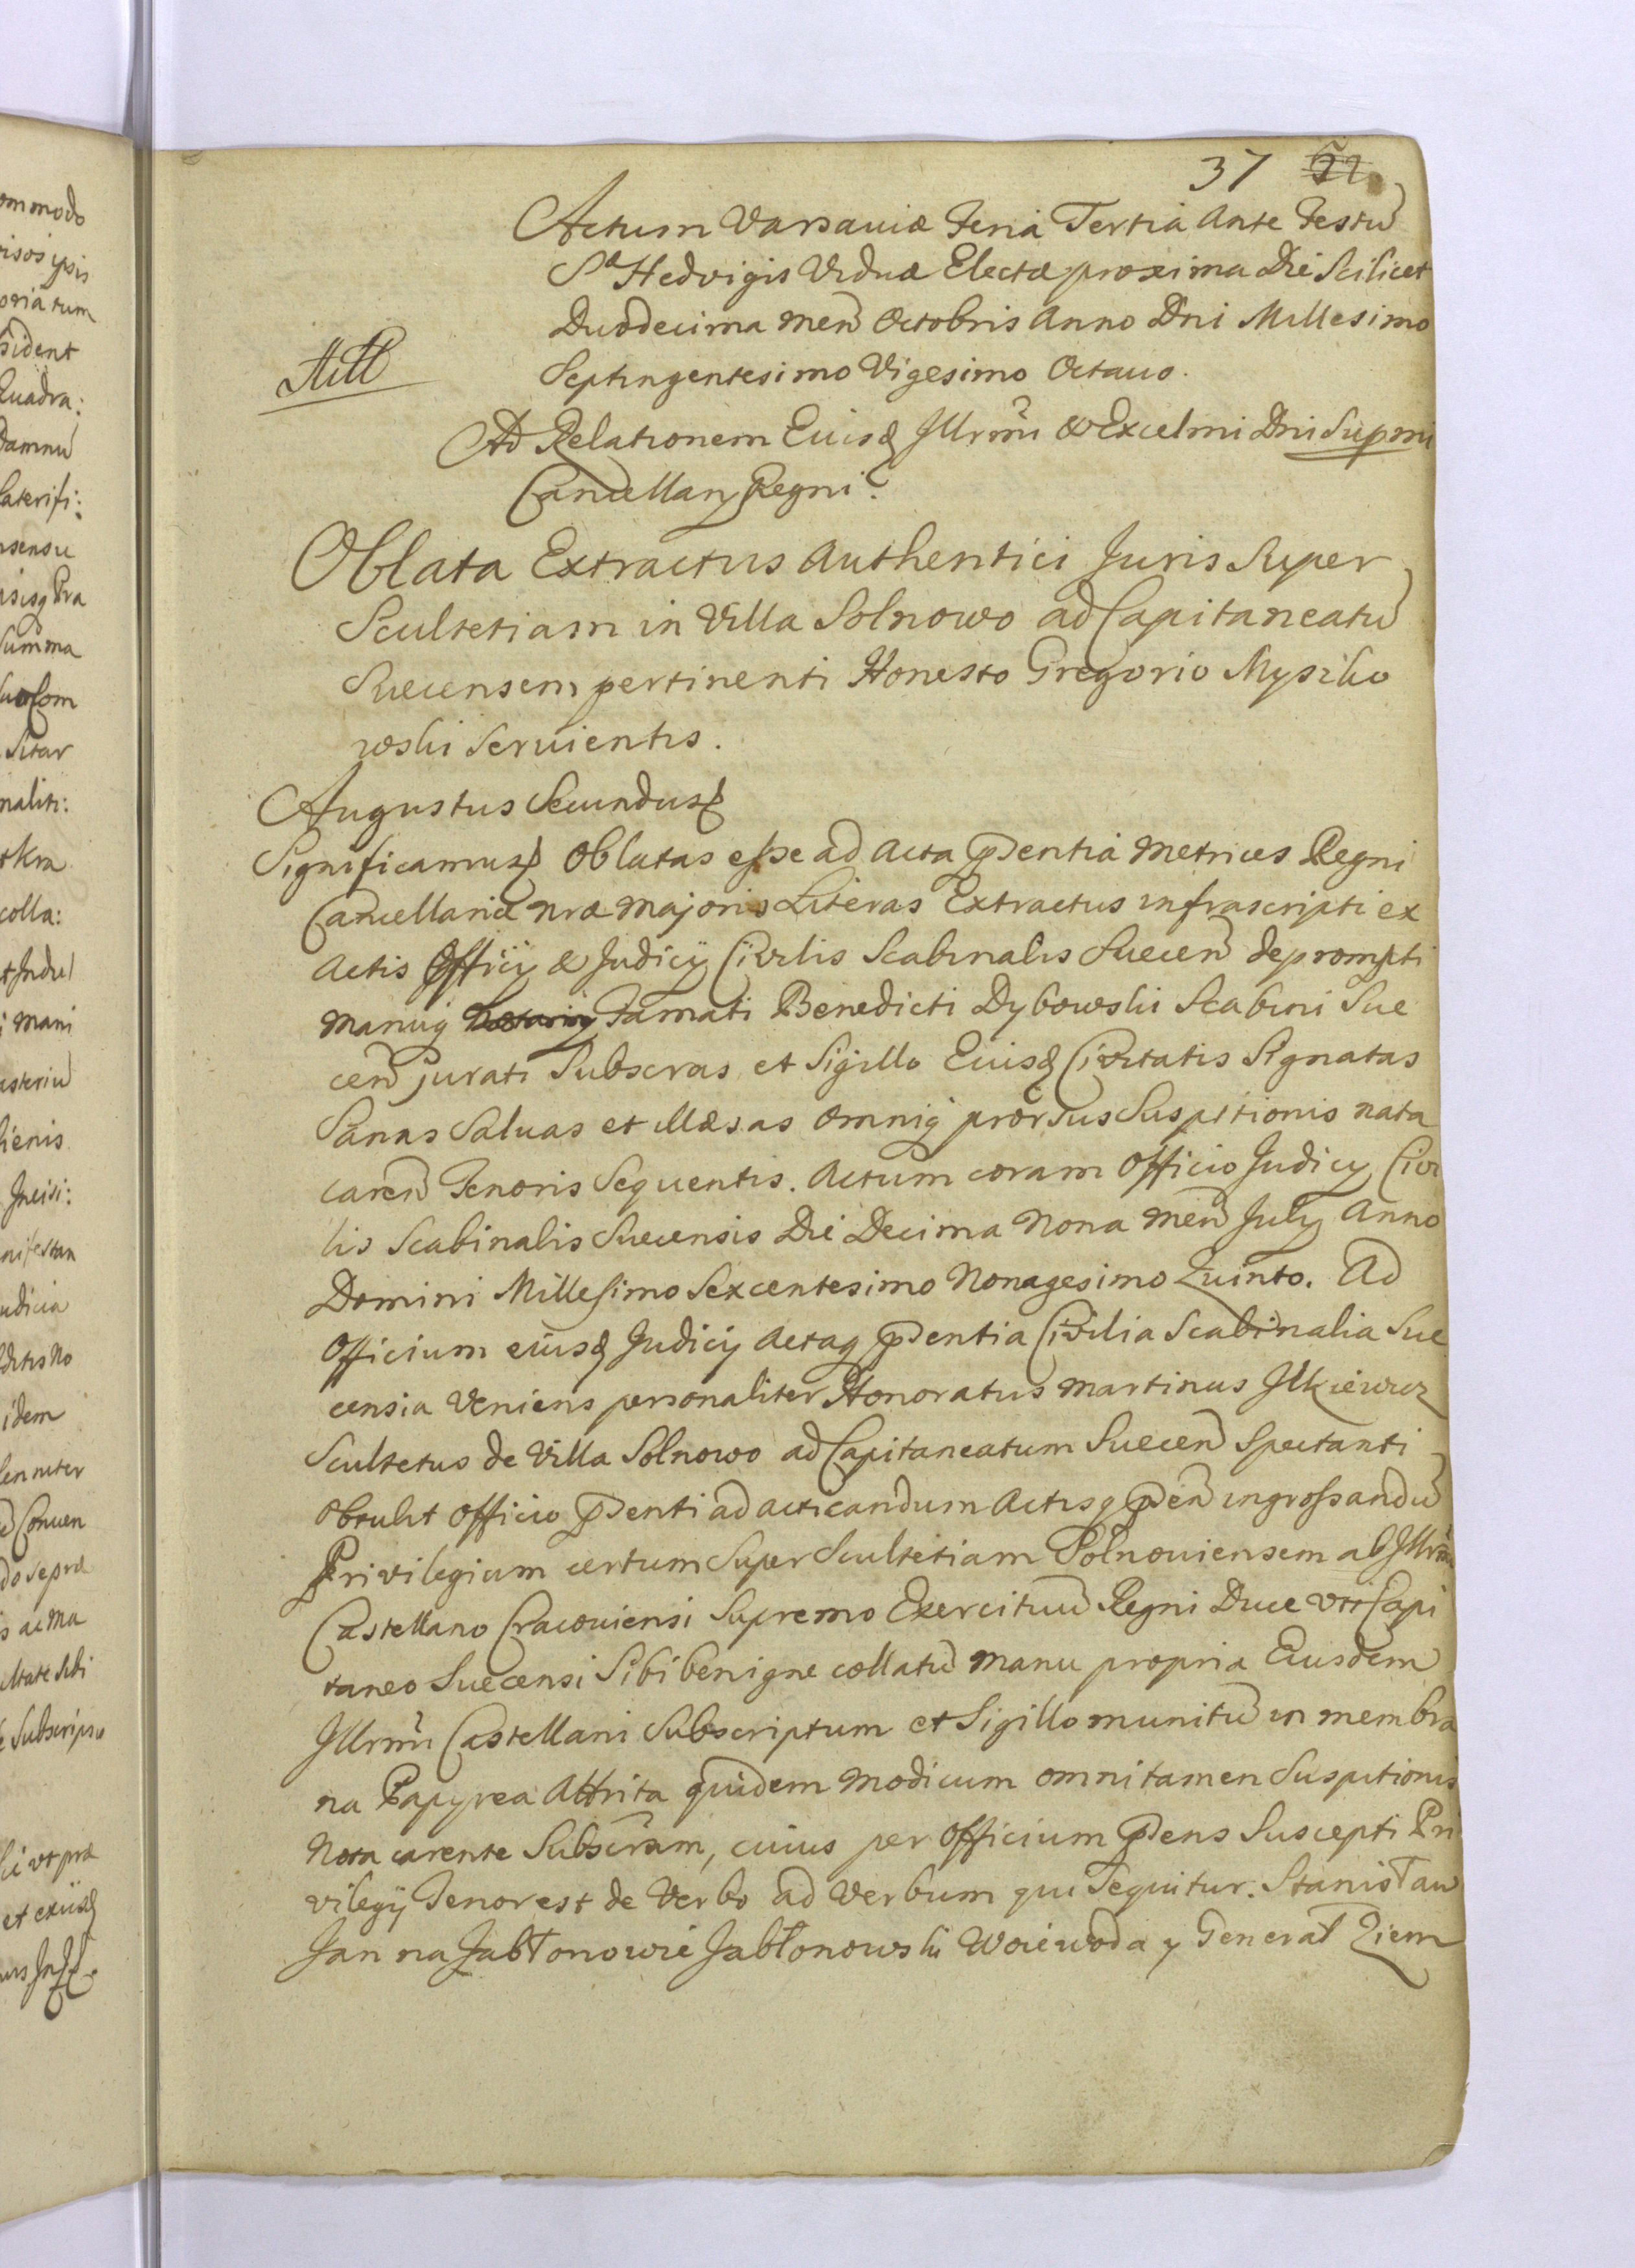 37
Actum Varsauiæ Feria Tertia Ante Festũ
Sæ Hedvigis Viduæ Electæ proxima Die Scilicet
Duodecima Menß Octobris Anno Dni Millesimo
Septingentesimo Vigesimo Octauo.
Ad Relationem Eiusđ Illrmi & Excelmi Dni Supmi
Cancellarij Regni.
Oblata Extractus Authentici Juris Super
Scultetiam in Villa Solnowo ad Capitaneatũ
Suecensem pertinenti Honesto Gregorio Myszko
wski Seruientis.
Augustus Secundus
Significamus Oblatas esse ad Acta pñdentia Metrices Regni
Cancellariæ nræ Majoris Literas Extractus infrascripti ex
Actis Officij & Judicij Civilis Scabinalis Suecen̄ deprompti
manuq Famati Benedicti Dybowski Scabini Sue
cen̄ jurati Subscras et Sigillo Eiusđ Civitatis Signatas
Sanas Saluas et illæsas omniq prorsus Suspitionis nota
caren̄ Tenoris Sequentis. Actum coram Officio Judicij Civi
lis Scabinalis Suecensis Die Decima Nona Men̄ July Anno
Domini Millesimo Sexcentesimo Nonagesimo Quinto. Ad
Officium eiusđ Judicij Actaq pñdentia Civilia Scabinalia Sue
censia Veniens personaliter Honoratus Martinus Ilkiewicz
Scultetus de Villa Solnowo ad Capitaneatum Suecen̄ Spectanti
obtulit Officio pñdenti ad acticandum Actisq pñden̄ ingrossandũ
Privilegium certum Super Scultetiam Polnouiensem ab Illrmo
Castellano Cracouiensi Supremo Exercituũ Regni Duce vti Capi
taneo Suecensi Sibi benigne collatũ manu propria Eiusdem
Illrmi Castellani Subscriptum et Sigillo munitũ in membra
na Papyrea Attrita quidem modicum omni tamen Suspitionis
Nota carente Subscram, cuius per Officium pñdens Suscepti Pri
vilegij Tenor est de Verbo ad Verbum qui Sequitur. Stanisław
Jan na Jabłonowie Jabłonowski Woiewoda y Generał Ziem
ommodo
risos ipsis
oria tum
sident
Quadra:
Damnũ
laterifi:
nsensu
Summa
Sitar
naliti:
colla:
i mani
usteriũ
lienis
Incisi:
nifestan
udicia
idem
Conuen
s ac Ma
ultate Sibi
Subscripsio